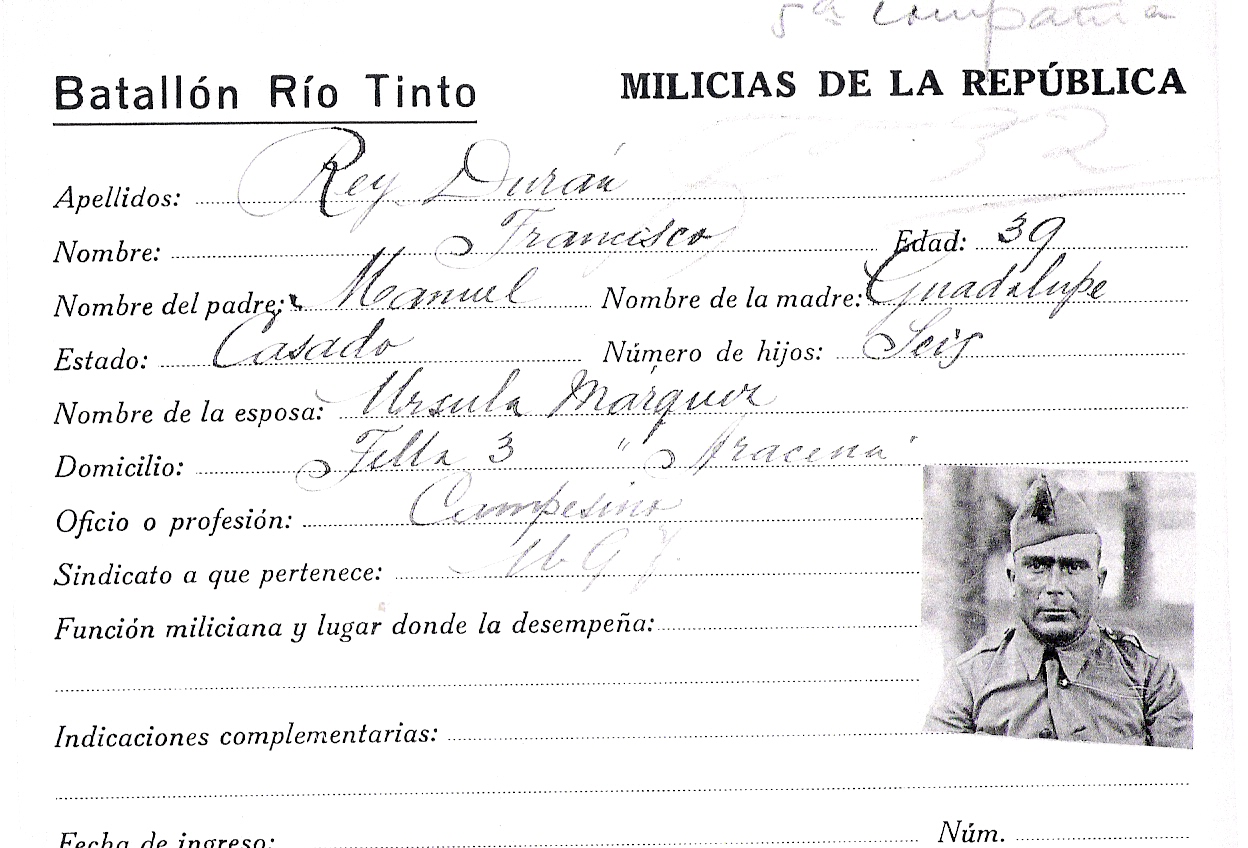 5ª Compañia
Batallón Río Tinto MILICIAS DE LA REPÚBLICA
32
Apellidos: Rey Durán
Nombre: Francisco Edad: 39
Nombre del padre: Manuel Nombre de la madre: Guadalupe
Estado: Casado Número de hijos: Seis
Nombre de la esposa: Ursula Márquez
Domicilio: 3 " Aracena "
Oficio o profesión: Campesino
Sindicato a que pertenece: U.G.T.
Función miliciana y lugar donde la desempeña:
Indicaciones complementarias:
Fecha de ingreso: Núm.